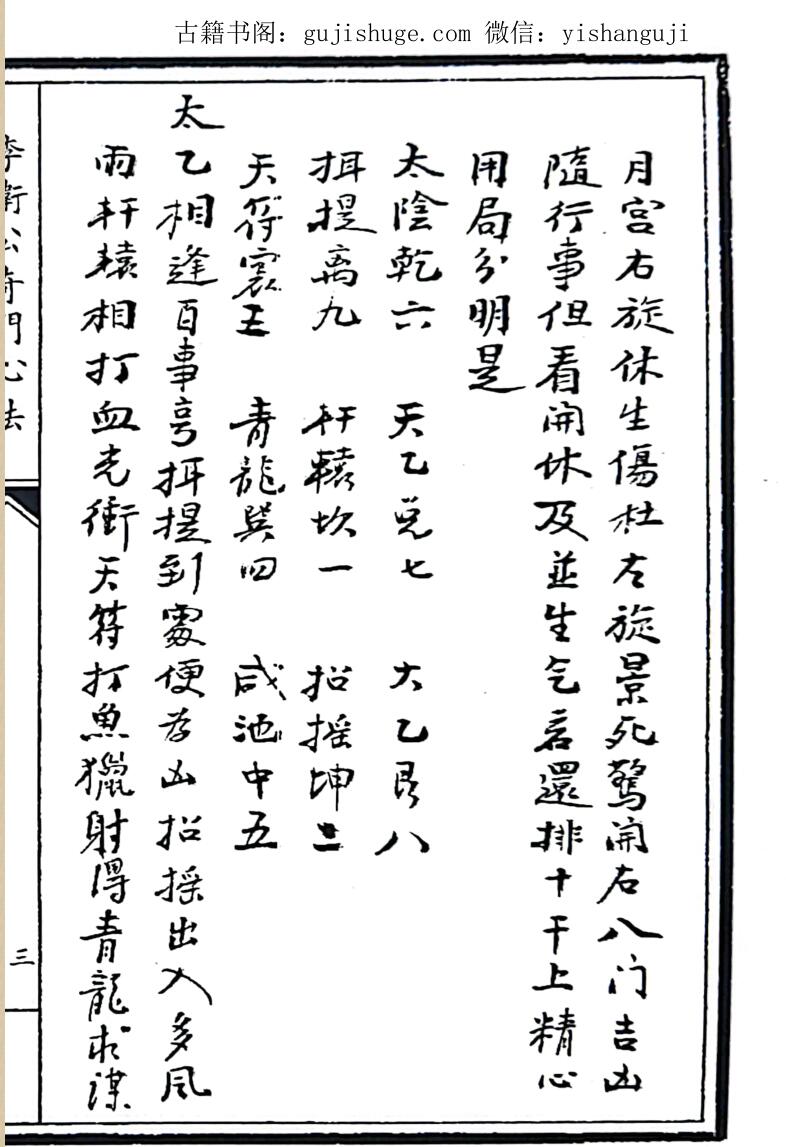 古籍书阁：gujishuge.com 微信：yishanguji
月宮右旋休生傷杜左旋景死驚開右八门吉凶
隨行事但看開休及並生乞言還排十干上精心
用局分明是
太陰乾六 天乙兑七 大乙艮八
挕提离九 軒轅坎一 招摇坤二
天符震三 青龍巽四 咸池中五
太乙相逢百事亨挕提到處便为凶招摇出入多风
雨軒轅相打血光衝天符打魚獵射得青龍求謀
李衛公奇門心法
三